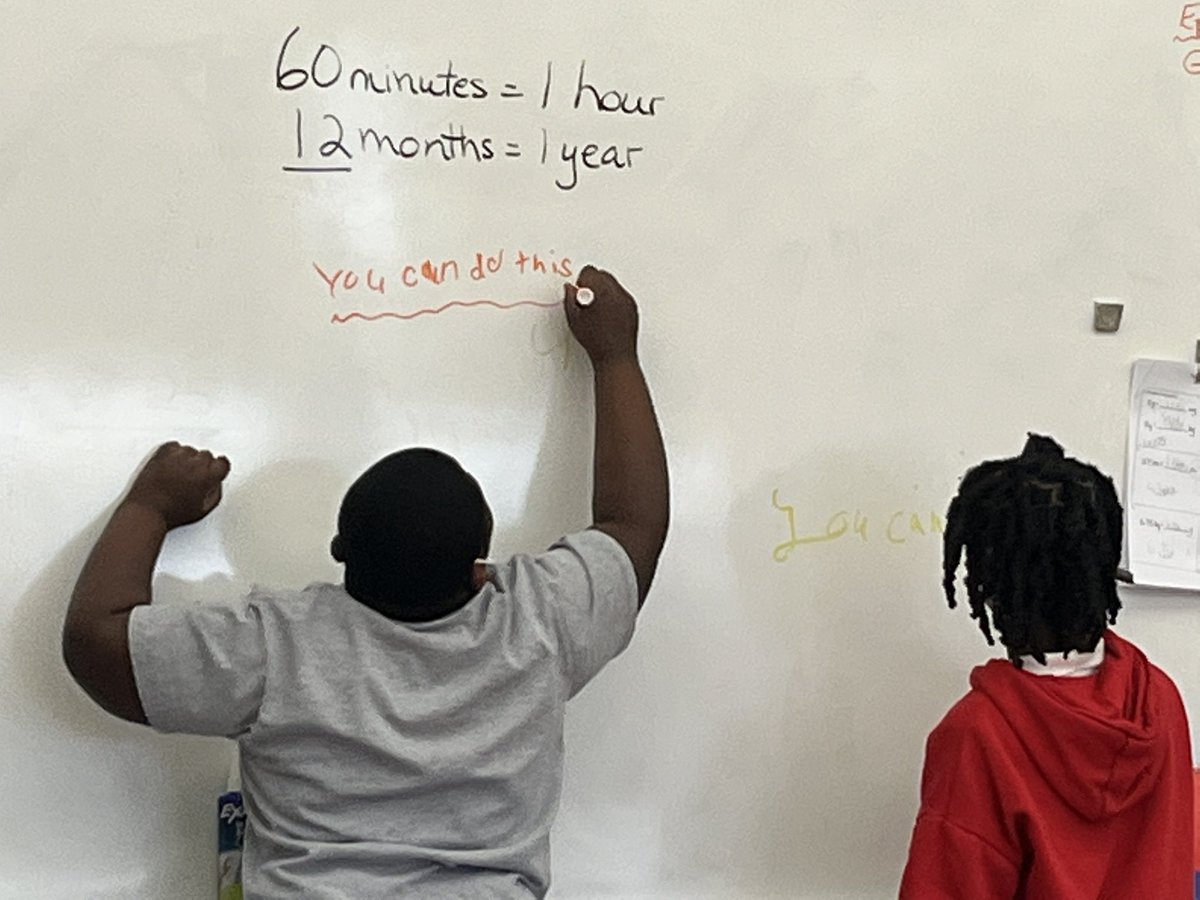 60 minutes = 1 hour
12 months = 1 year
You can do this
You can